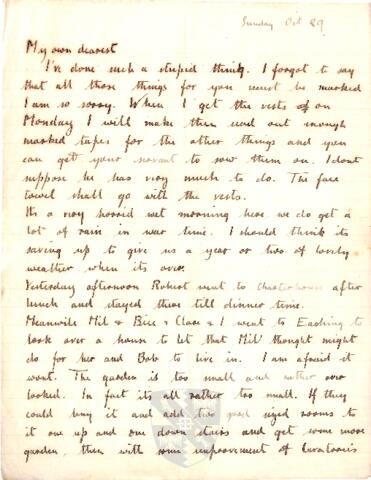 Sunday Oct 29
My own dearest
I've done such a stupid thing. I forgot to say
that all those things for you must be marked
I am so sorry. When I get the vests on
Monday I will make them send out enough
marked tapes for the other things and you
can get your servant to sow them on. I dont
suppose he has very much to do. The face
towel shall go with the vests.
Its a very horrid wet morning here we do get a
lot of rain in war time. I should think its
saving up to give us a year or two of lovely
weather when its over.
Yesterday afternoon Robert went to Charterhouse after
lunch and stayed there till dinner time.
Meanwile Mil & Bice & Clare & I went to Eashing to
look over a house to let that Mil thought might
do for her and Bob to live in. I am afraid it
wont. The garden is too small and rather over
looked. In fact its all rather too small. If they
could buy it and add two good sized rooms to
it one up and one down stairs and get some more
garden, then with some improvement of lavatories